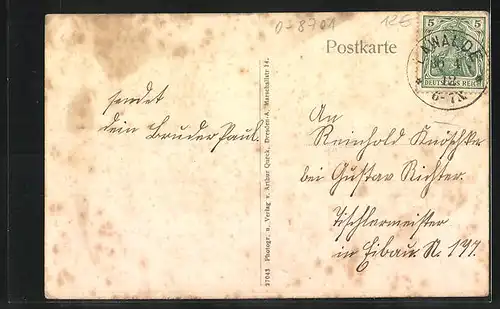 0-8701
12€
Postkarte
5 5
DEUTSCHES REICH
6-7N.
sendet
dein Bruder Paul.
27043 Photogr. u. Verlag v. Arthur Queck, Dresden-A. Marschallstr. 14.
An
Reinhold Knöschke
bei Gustav Richter.
Tischlermeister
in Eibau. N. 197.